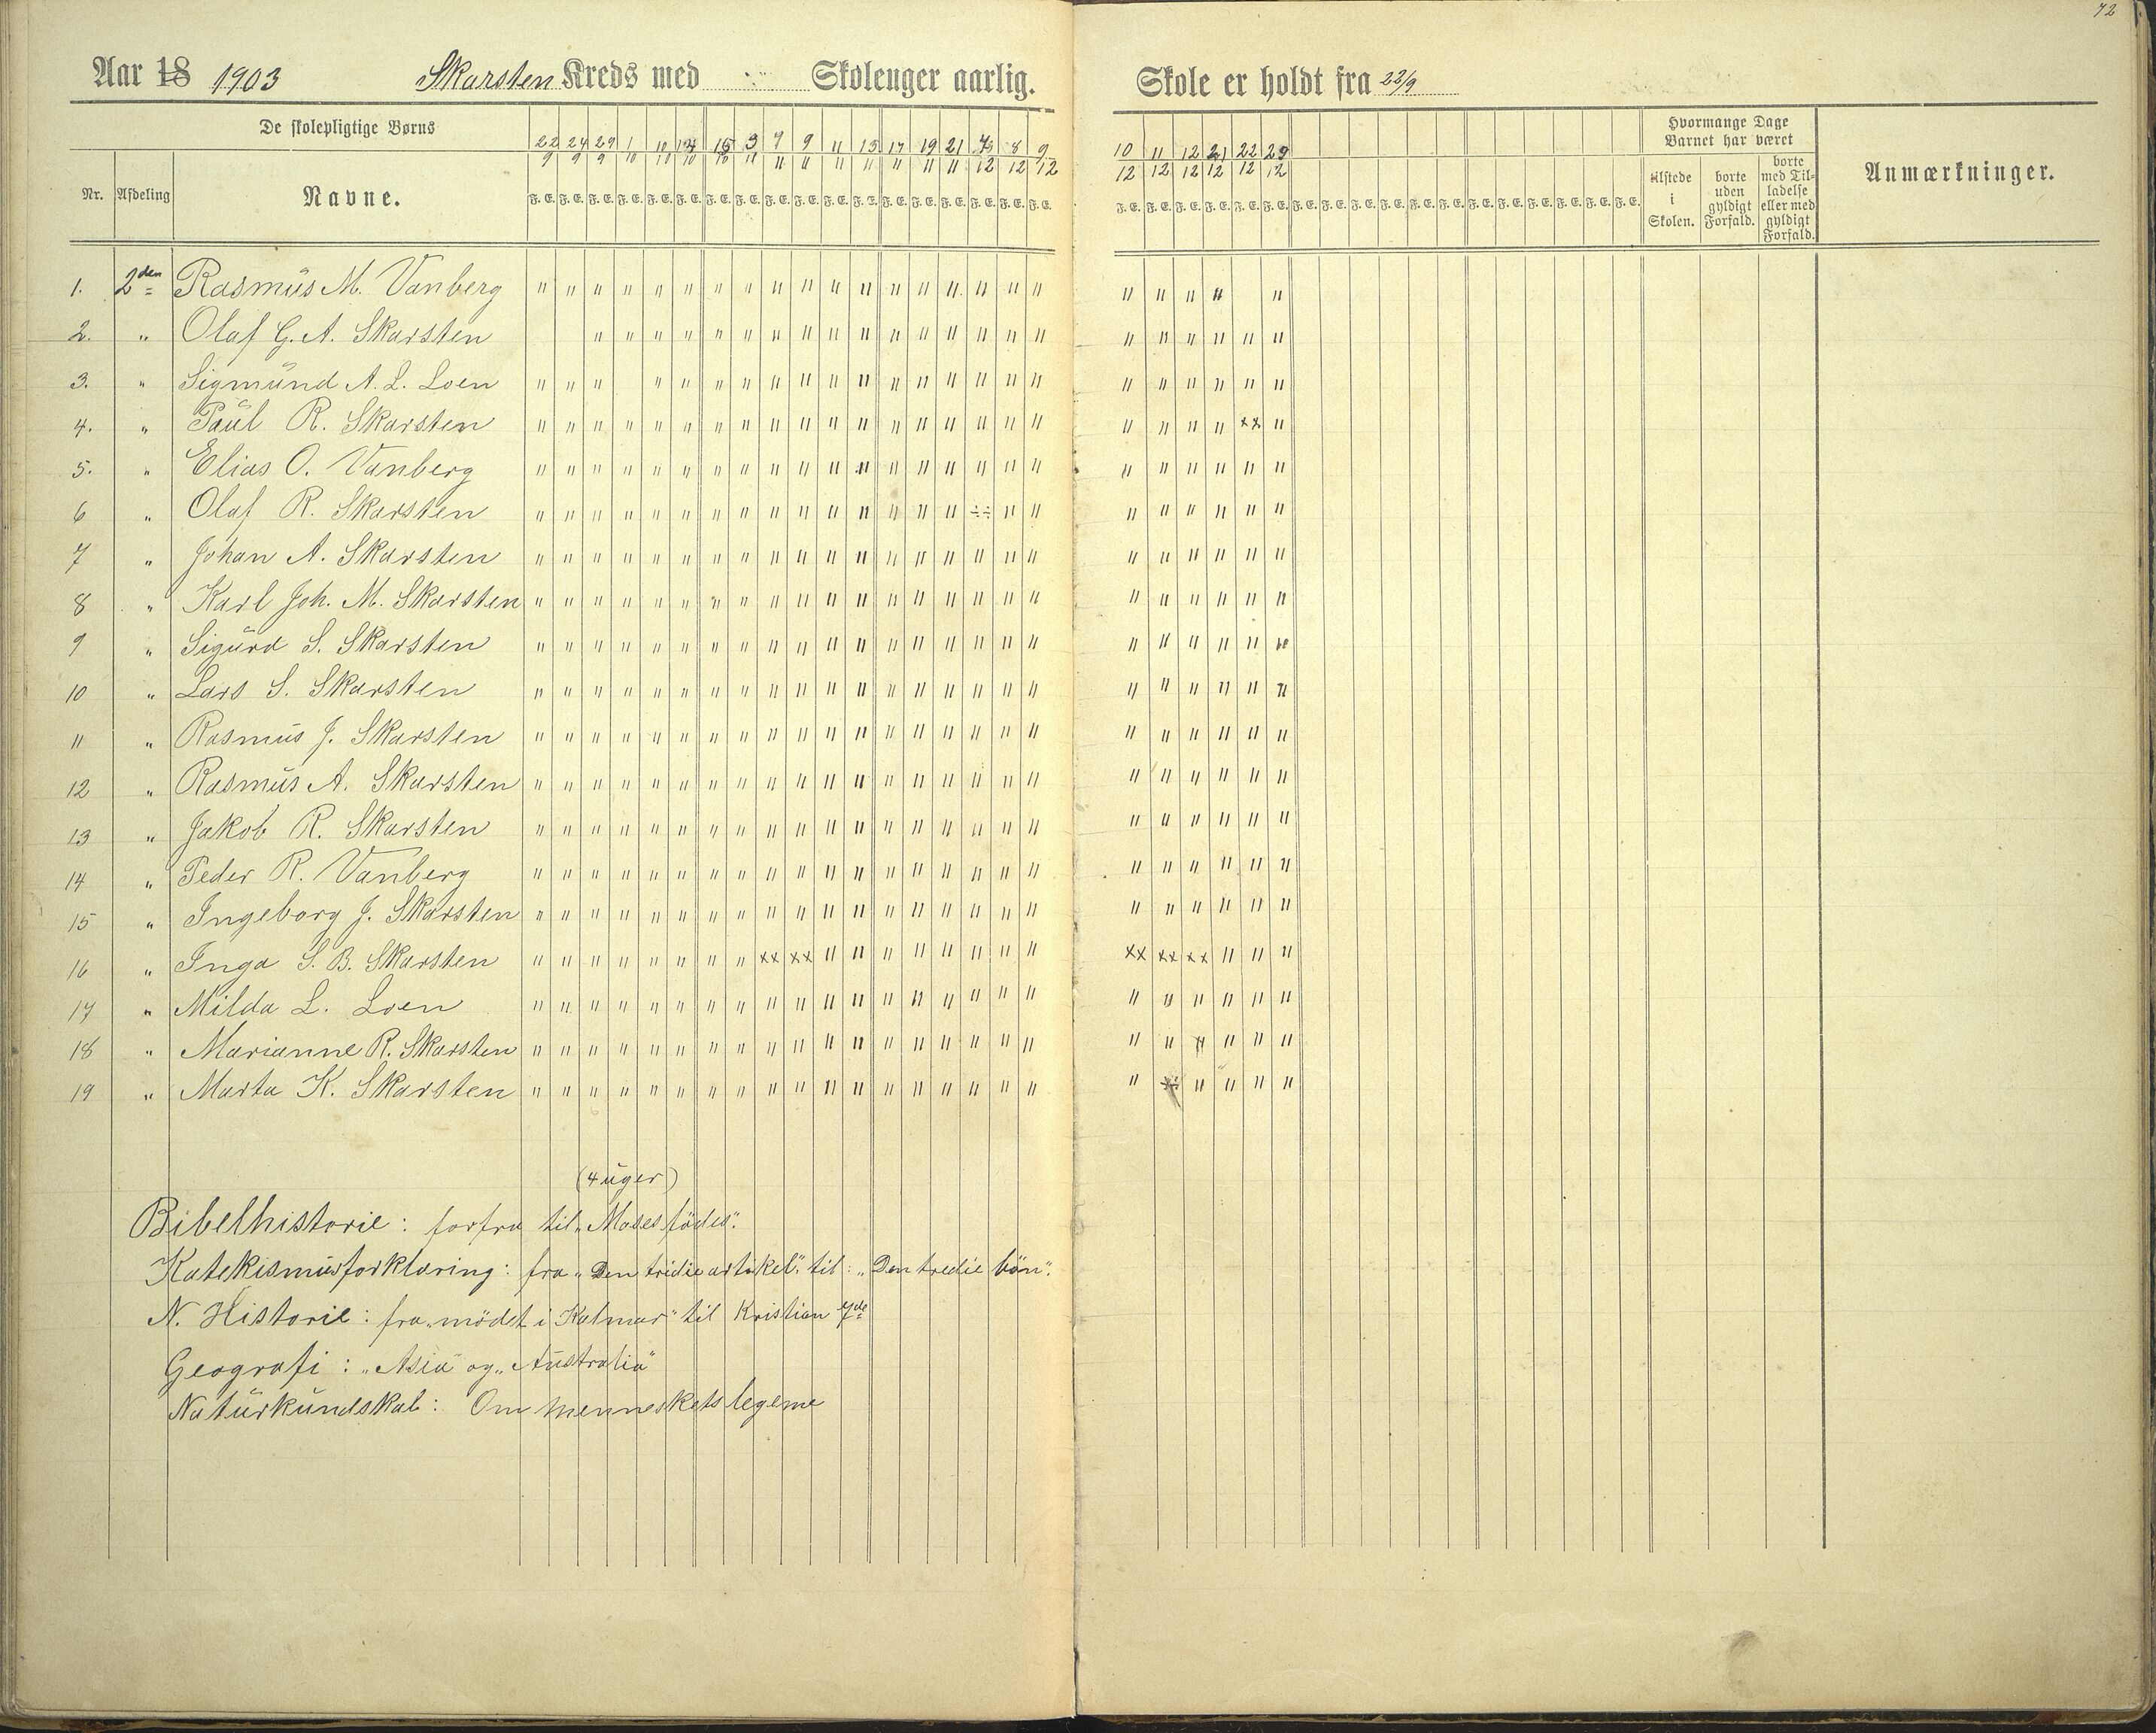 72
Aar 18 1903 Skarsten Kreds med Skoleuger aarlig. Skole er holdt fra 22/9
De skolepligtige Børns
22/9 24/9 29/9 1/10 10/10 14/10 15/10 3/11 7/11 9/11 11/11 13/11 17/11 19/11 21/11 7/12 8/12 9/12 10/12 11/12 12/12 21/12 22/12 23/12
Hvormange Dage Barnet har været
Nr. Afdeling Navne.
F. E. F. E. F. E. F. E. F. E. F. E. F. E. F. E. F. E. F. E. F. E. F. E. F. E. F. E. F. E. F. E. F. E. F. E.
F. E. F. E. F. E. F. E. F. E. F. E. F. E. F. E. F. E. F. E. F. E. F. E. F. E. F. E. F. E. F. E. F. E. F. E.
tilstede i Skolen.
borte uden gyldigt Forfald.
borte med Tilladelse eller med gyldigt Forfald.
Anmærkninger.
1. 2den Rasmus M. Vanberg " " " " " " " " " " " " " " " " " " " " " " "
2. " Olaf G. A. Skarsten " " " " " " " " " " " " " " " " " " " " " "
3. " Sigmund A. L. Loen " " " " " " " " " " " " " " " " " " " " " " "
4. " Paul R. Skarsten " " " " " " " " " " " " " " " " " " " " " " xx "
5. " Elias O. Vanberg " " " " " " " " " " " " " " " " " " " " " " " "
6 " Olaf R. Skarsten " " " " " " " " " " " " " " " ÷÷ " " " " " " " "
7 " Johan A. Skarsten " " " " " " " " " " " " " " " " " " " " " " " "
8 " Karl Joh. M. Skarsten " " " " " " " " " " " " " " " " " " " " " " " "
9 " Sigurd S. Skarsten " " " " " " " " " " " " " " " " " " " " " " " "
10 " Lars S. Skarsten " " " " " " " " " " " " " " " " " " " " " " " "
11 " Rasmus J. Skarsten " " " " " " " " " " " " " " " " " " " " " " " "
12 " Rasmus A. Skarsten " " " " " " " " " " " " " " " " " " " " " " " "
13 " Jakob R. Skarsten " " " " " " " " " " " " " " " " " " " " " " " "
14 " Peder R. Vanberg " " " " " " " " " " " " " " " " " " " " " " " "
15 " Ingeborg J. Skarsten " " " " " " " " " " " " " " " " " " " " " " " "
16 " Inga S. B. Skarsten " " " " " " " " xx xx " " " " " " " " xx xx xx " " "
17 " Milda L. Loen " " " " " " " " " " " " " " " " " " " " " " " "
18 " Marianne R. Skarsten " " " " " " " " " " " " " " " " " " " " " " " "
19 " Marta K. Skarsten " " " " " " " " " " " " " " " " " " " ÷÷ " " " "
(4 uger)
Bibelhistorie: forfra til „Moses födes".
Katekismusforklaring: fra „Den tridie artikel" til: „Den tredie bön".
N. Historie: fra „mödet i Kalmar" til Kristian 7de
Geografi: „Asia" og „Australia"
Naturkundskab: Om menneskets legeme